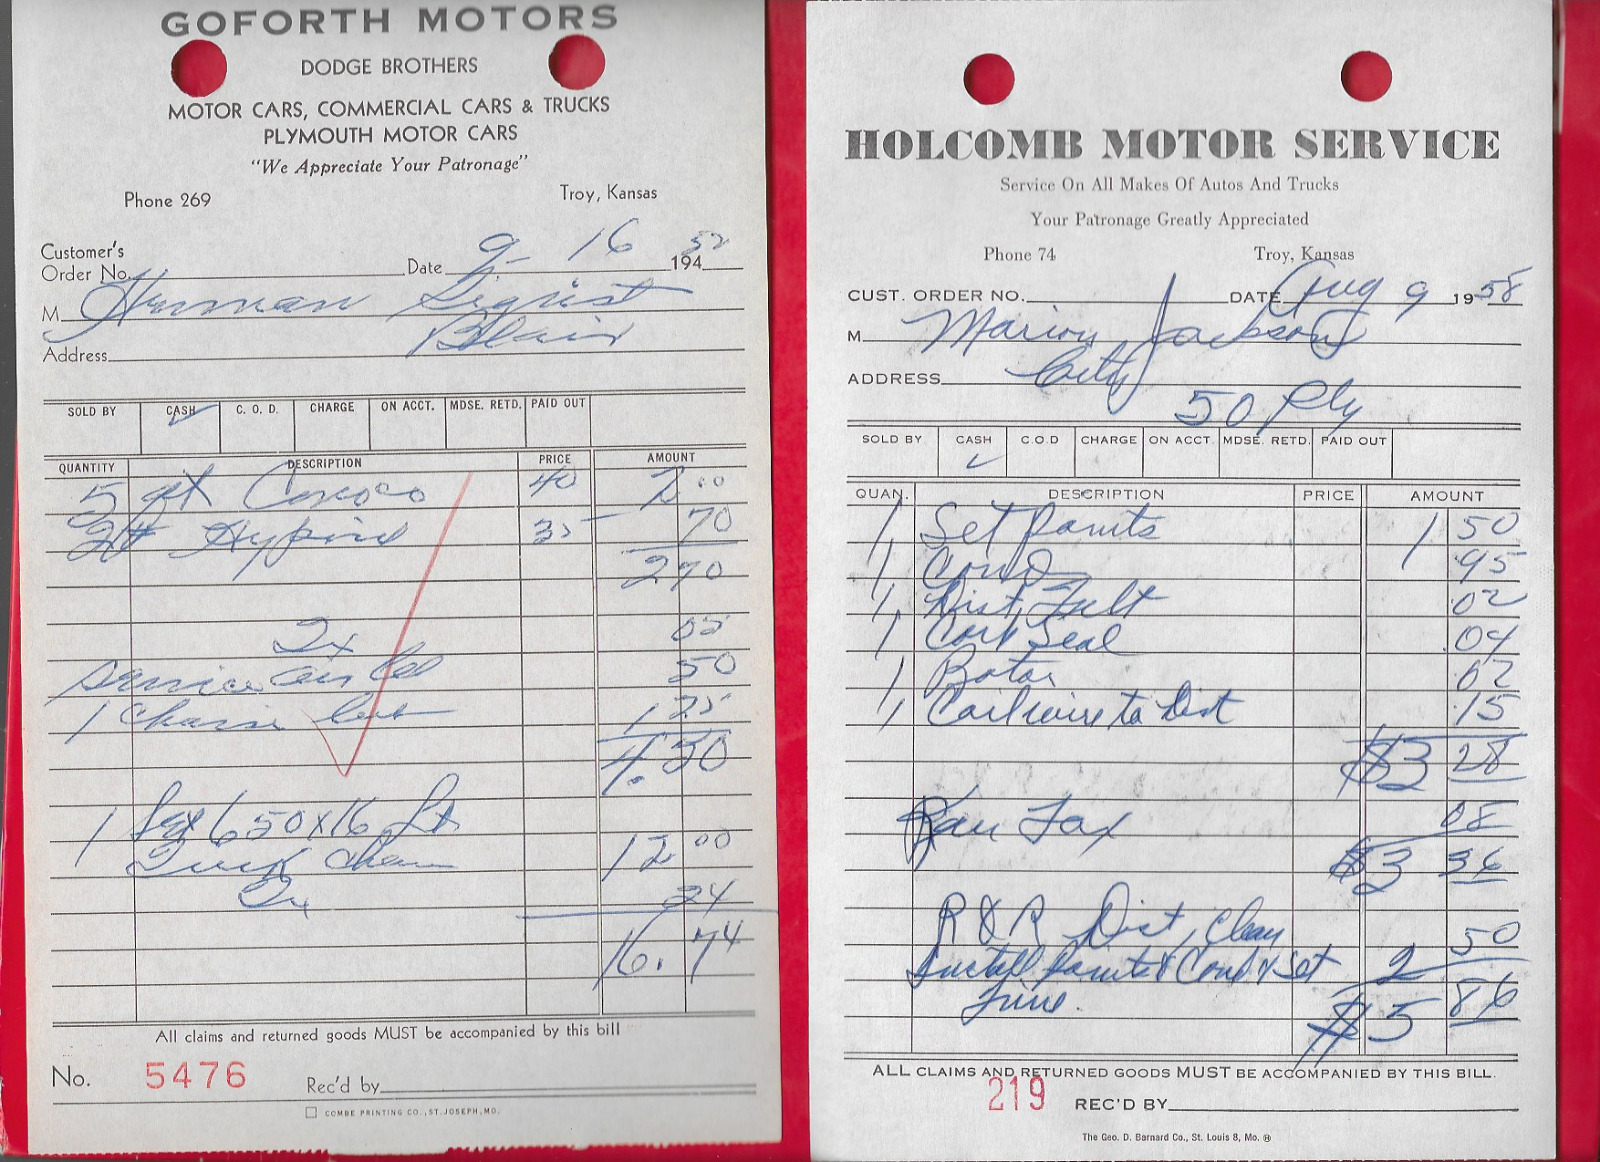 GOFORTH MOTORS
DODGE BROTHERS
MOTOR CARS, COMMERCIAL CARS & TRUCKS
PLYMOUTH MOTOR CARS
"We Appreciate Your Patronage"
Phone 269 Troy, Kansas
Customer's
Order No. Date 9-16 194 52
M Herman Siquist
Address Blair
SOLD BY CASH ✓ C. O. D. CHARGE ON ACCT. MDSE. RETD. PAID OUT
QUANTITY DESCRIPTION PRICE AMOUNT
5 qt Conoco 40 2.00
2# Hypoid 35 70
2 70
Tx 05
Service air Cl 50
1 1 25
4.50
1 Set 650x16
Truck Chain 12 00
Tx 24
16.74
All claims and returned goods MUST be accompanied by this bill
No. 5476 Rec'd by
COMBE PRINTING CO., ST. JOSEPH, MO.
HOLCOMB MOTOR SERVICE
Service On All Makes Of Autos And Trucks
Your Patronage Greatly Appreciated
Phone 74 Troy, Kansas
CUST. ORDER NO. DATE Aug 9 1958
M Marion Jackson
ADDRESS City
50 Ply
SOLD BY CASH ✓ C.O.D CHARGE ON ACCT. MDSE. RETD. PAID OUT
QUAN. DESCRIPTION PRICE AMOUNT
1, Set Points 1 50
1, Cond .95
1, Dist, Felt .02
1, Cork Seal .04
1, Rotor .62
1, Coil wire to Dist .15
$3 28
Kan Tax 08
$3 36
R & R Dist, Clean
Install Points & Cond & Set 2 50
Time. $5 86
ALL CLAIMS AND RETURNED GOODS MUST BE ACCOMPANIED BY THIS BILL.
219 REC'D BY
The Geo. D. Barnard Co., St. Louis 8, Mo.